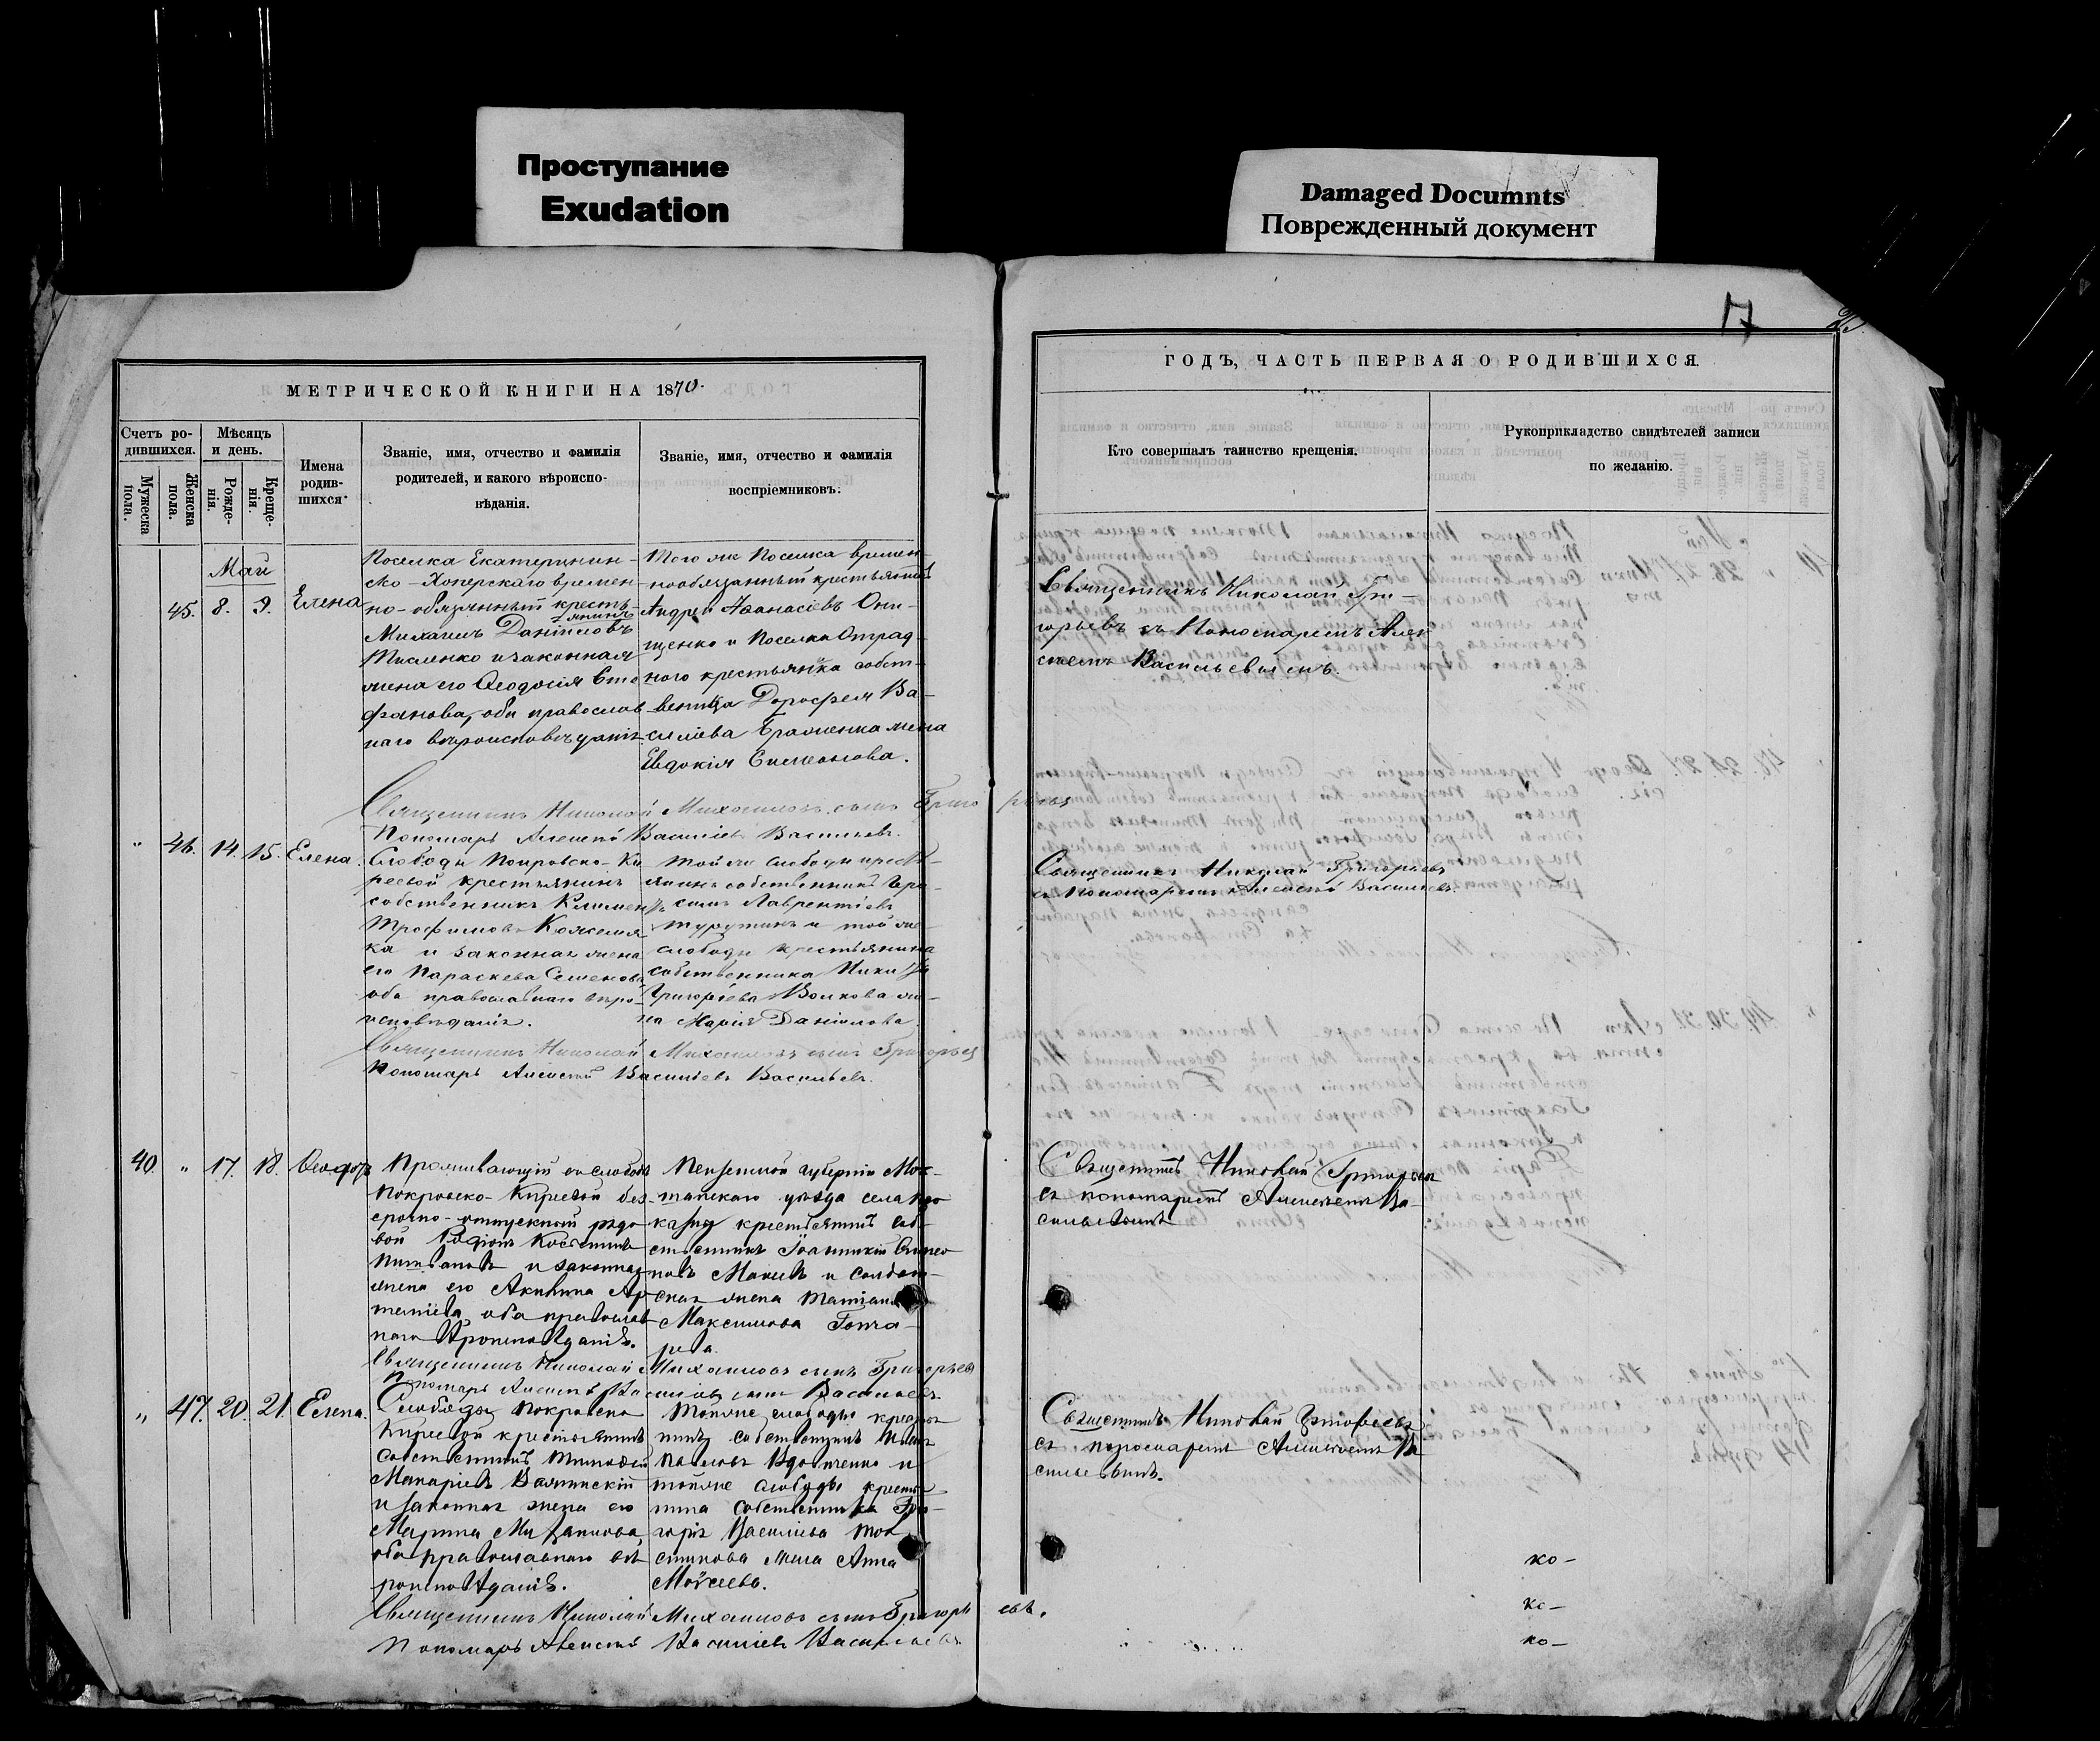 Проступание
Exudation
Damaged Documnts
Поврежденный документ
17
МЕТРИЧЕСКОЙ КНИГИ НА 1870.
Счетъ ро-
дившихся.
Мужеска
пола.
Женска
пола.
Мѣсяцъ
и день.
Рожде-
нія.
Креще-
нія.
Имена
родив-
шихся.
Званіе, имя, отчество и фамилія
родителей, и какого вѣроиспо-
вѣданія.
Званіе, имя, отчество и фамилія
воспріемниковъ.
Май
45. 8. 9. Елена
Поселка Екатеринин-
ско-Хоперскаго времен
но-обязанный кресть-
янинъ
Михаилъ Даніиловъ
Тисленко и законная
жена его Ѳеодосія Сте
фанова, оби православ
наго вѣроисповѣданія.
Того же Поселка времен-
нообязанный крестьянинъ
Андрей Аѳанасіевъ Они-
щенко и Поселка Отрад-
ного крестьянка собст-
венника Дорофея Ва-
силіева жена
Евдокія Симеонова.
Священникъ Николай Михаиловъ сынъ Григорьевъ
Пономарь Алексѣй Василіевъ Васильевъ.
" 46. 14. 15. Елена.
Слободы Покровско-Ки
реевой крестьянинъ
собственникъ Климентъ
Трофимовъ Кожемя
ка и законная жена
его Параскева Семенова
оба православнаго вѣро-
исповѣданія.
Той же слободы кресть-
янинъ собственникъ Гера-
симъ Лаврентіевъ
и той же
слободы крестьянина
собственника Никиты
Григорьева Волкова же-
на Марія Даніилова.
Священникъ Николай Михаиловъ сынъ Григорьевъ
Пономарь Алексѣй Василіевъ Васильевъ.
40. " 17. 18. Ѳеодоръ
Проживающій въ слободѣ
Покровско-Киреевой без-
срочно-отпускной рядо
вой Родіонъ
и законная
жена его Акилина Ар
теміева, оба православ
наго вѣроисповѣданія.
Пензенской губерніи Мок-
шанскаго уѣзда села
крестьянинъ соб-
ственникъ Іоанникій Симео
новъ и солдат-
ская жена Татіана
Максимова Гонча-
рева.
Священникъ Николай Михаиловъ сынъ Григорьевъ
Пономарь Алексѣй Василіевъ сынъ Васильевъ.
" 47. 20. 21. Елена.
Слободы Покровско
Киреевой крестьянинъ
собственникъ Тимофей
Макаріевъ
и законная жена его
Марина Михаилова
оба православнаго вѣ
роисповѣданія.
Той же слободы крестья
нинъ собственникъ
Павловъ Вдовиченко и
той же слободы крестья
нина собственника Гри-
горія Василіева Тол
стикова жена Анна
Моѵсеева.
Священникъ Николай Михаиловъ сынъ Григорьевъ.
Пономарь Алексѣй Василіевъ Васильевъ
ГОДЪ, ЧАСТЬ ПЕРВАЯ О РОДИВШИХСЯ.
Кто совершалъ таинство крещенія.
Рукоприкладство свидѣтелей записи
по желанію.
Священникъ Николай Гри-
горьевъ съ Пономаремъ Алек
сѣемъ Васильевымъ.
Священникъ Николай Григорьевъ
съ Пономаремъ Алексѣй Васильевъ.
Священникъ Николай Григорьевъ
съ пономаремъ Алексѣемъ Ва-
сильевымъ
Священникъ Николай Григорьевъ
съ пономаремъ Алексѣемъ Ва
сильевымъ.
ко-
ко-
ко-